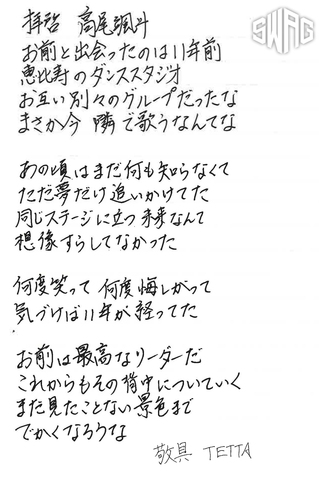 SWAG
拝啓 高尾颯斗
お前と出会ったのは11年前
恵比寿のダンススタジオ
お互い別々のグループだったな
まさか今 隣で歌うなんてな
あの頃はまだ何も知らなくて
ただ夢だけ追いかけてた
同じステージに立つ未来なんて
想像すらしてなかった
何度笑って 何度悔しがって
気づけば11年が経ってた
お前は最高なリーダーだ
これからもその背中についていく
まだ見たことない景色まで
でかくなろうな
敬具 TETTA